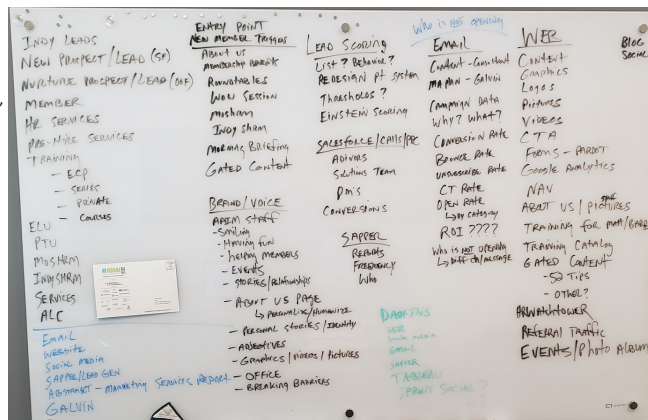 INDY LEADS
NEW PROSPECT/LEAD (SF)
NURTURE PROSPECT/LEAD (OFF)
MEMBER
HR SERVICES
PRE-HIRE SERVICES
TRAINING
- ECP
- SERIES
- PRIVATE
- COURSES
ELU
PTU
MOSHRM
INDYSHRM
SERVICES
ALC
EMAIL
WEBSITE
SOCIAL MEDIA
SAPPER/LEAD GEN
ABSTRAKT - MARKETING SERVICES REPORT
GALVIN
ENTRY POINT
NEW MEMBER TRIGGERS
ABOUT US
MEMBERSHIP BENEFITS
ROUNDTABLES
WOW SESSION
MOSHRM
INDY SHRM
MORNING BRIEFING
GATED CONTENT
BRAND/VOICE
AAIM STAFF
- Smiling
- HAVING FUN
- helping members
- EVENTS
- STORIES/RELATIONSHIPS
- ABOUT US PAGE
↳ PERSONALIZE/HUMANIZE
- PERSONAL STORIES/IDENTITY
- ADJECTIVES
- GRAPHICS/VIDEOS/PICTURES
- OFFICE
- BREAKING BARRIERS
LEAD SCORING
LIST? BEHAVIOR?
REDESIGN PT SYSTEM
THRESHOLDS?
EINSTEIN SCORING
SALESFORCE/CALLS/PEC
ADVISORS
SOLUTIONS TEAM
DM's
CONVERSIONS
SAPPER
REPORTS
FREQUENCY
WHO
DASH THIS
WEB
SOCIAL MEDIA
EMAIL
SAPPER
TABLEAU
SPROUT SOCIAL?
WHO IS NOT OPENING
EMAIL
CONTENT - CONSISTENT
MAILMAN - GALVIN
CAMPAIGN DATA
WHY? WHAT?
CONVERSION RATE
BOUNCE RATE
UNSUBSCRIBE RATE
CT RATE
OPEN RATE
↳ BY CATEGORY
ROI ????
WHO IS NOT OPENING
↳ DIFF CH/MESSAGE
WEB
CONTENT
GRAPHICS
LOGOS
PICTURES
VIDEOS
CTA
FORMS - PARDOT
GOOGLE ANALYTICS
NAV
ABOUT US / PICTURES
TRAINING FOR
TRAINING CATALOG
GATED CONTENT
- 50 TIPS
- OTHER?
ARWATCHTOWER
REFERRAL TRAFFIC
EVENTS/PHOTO ALBUM
BLOG
SOCIAL